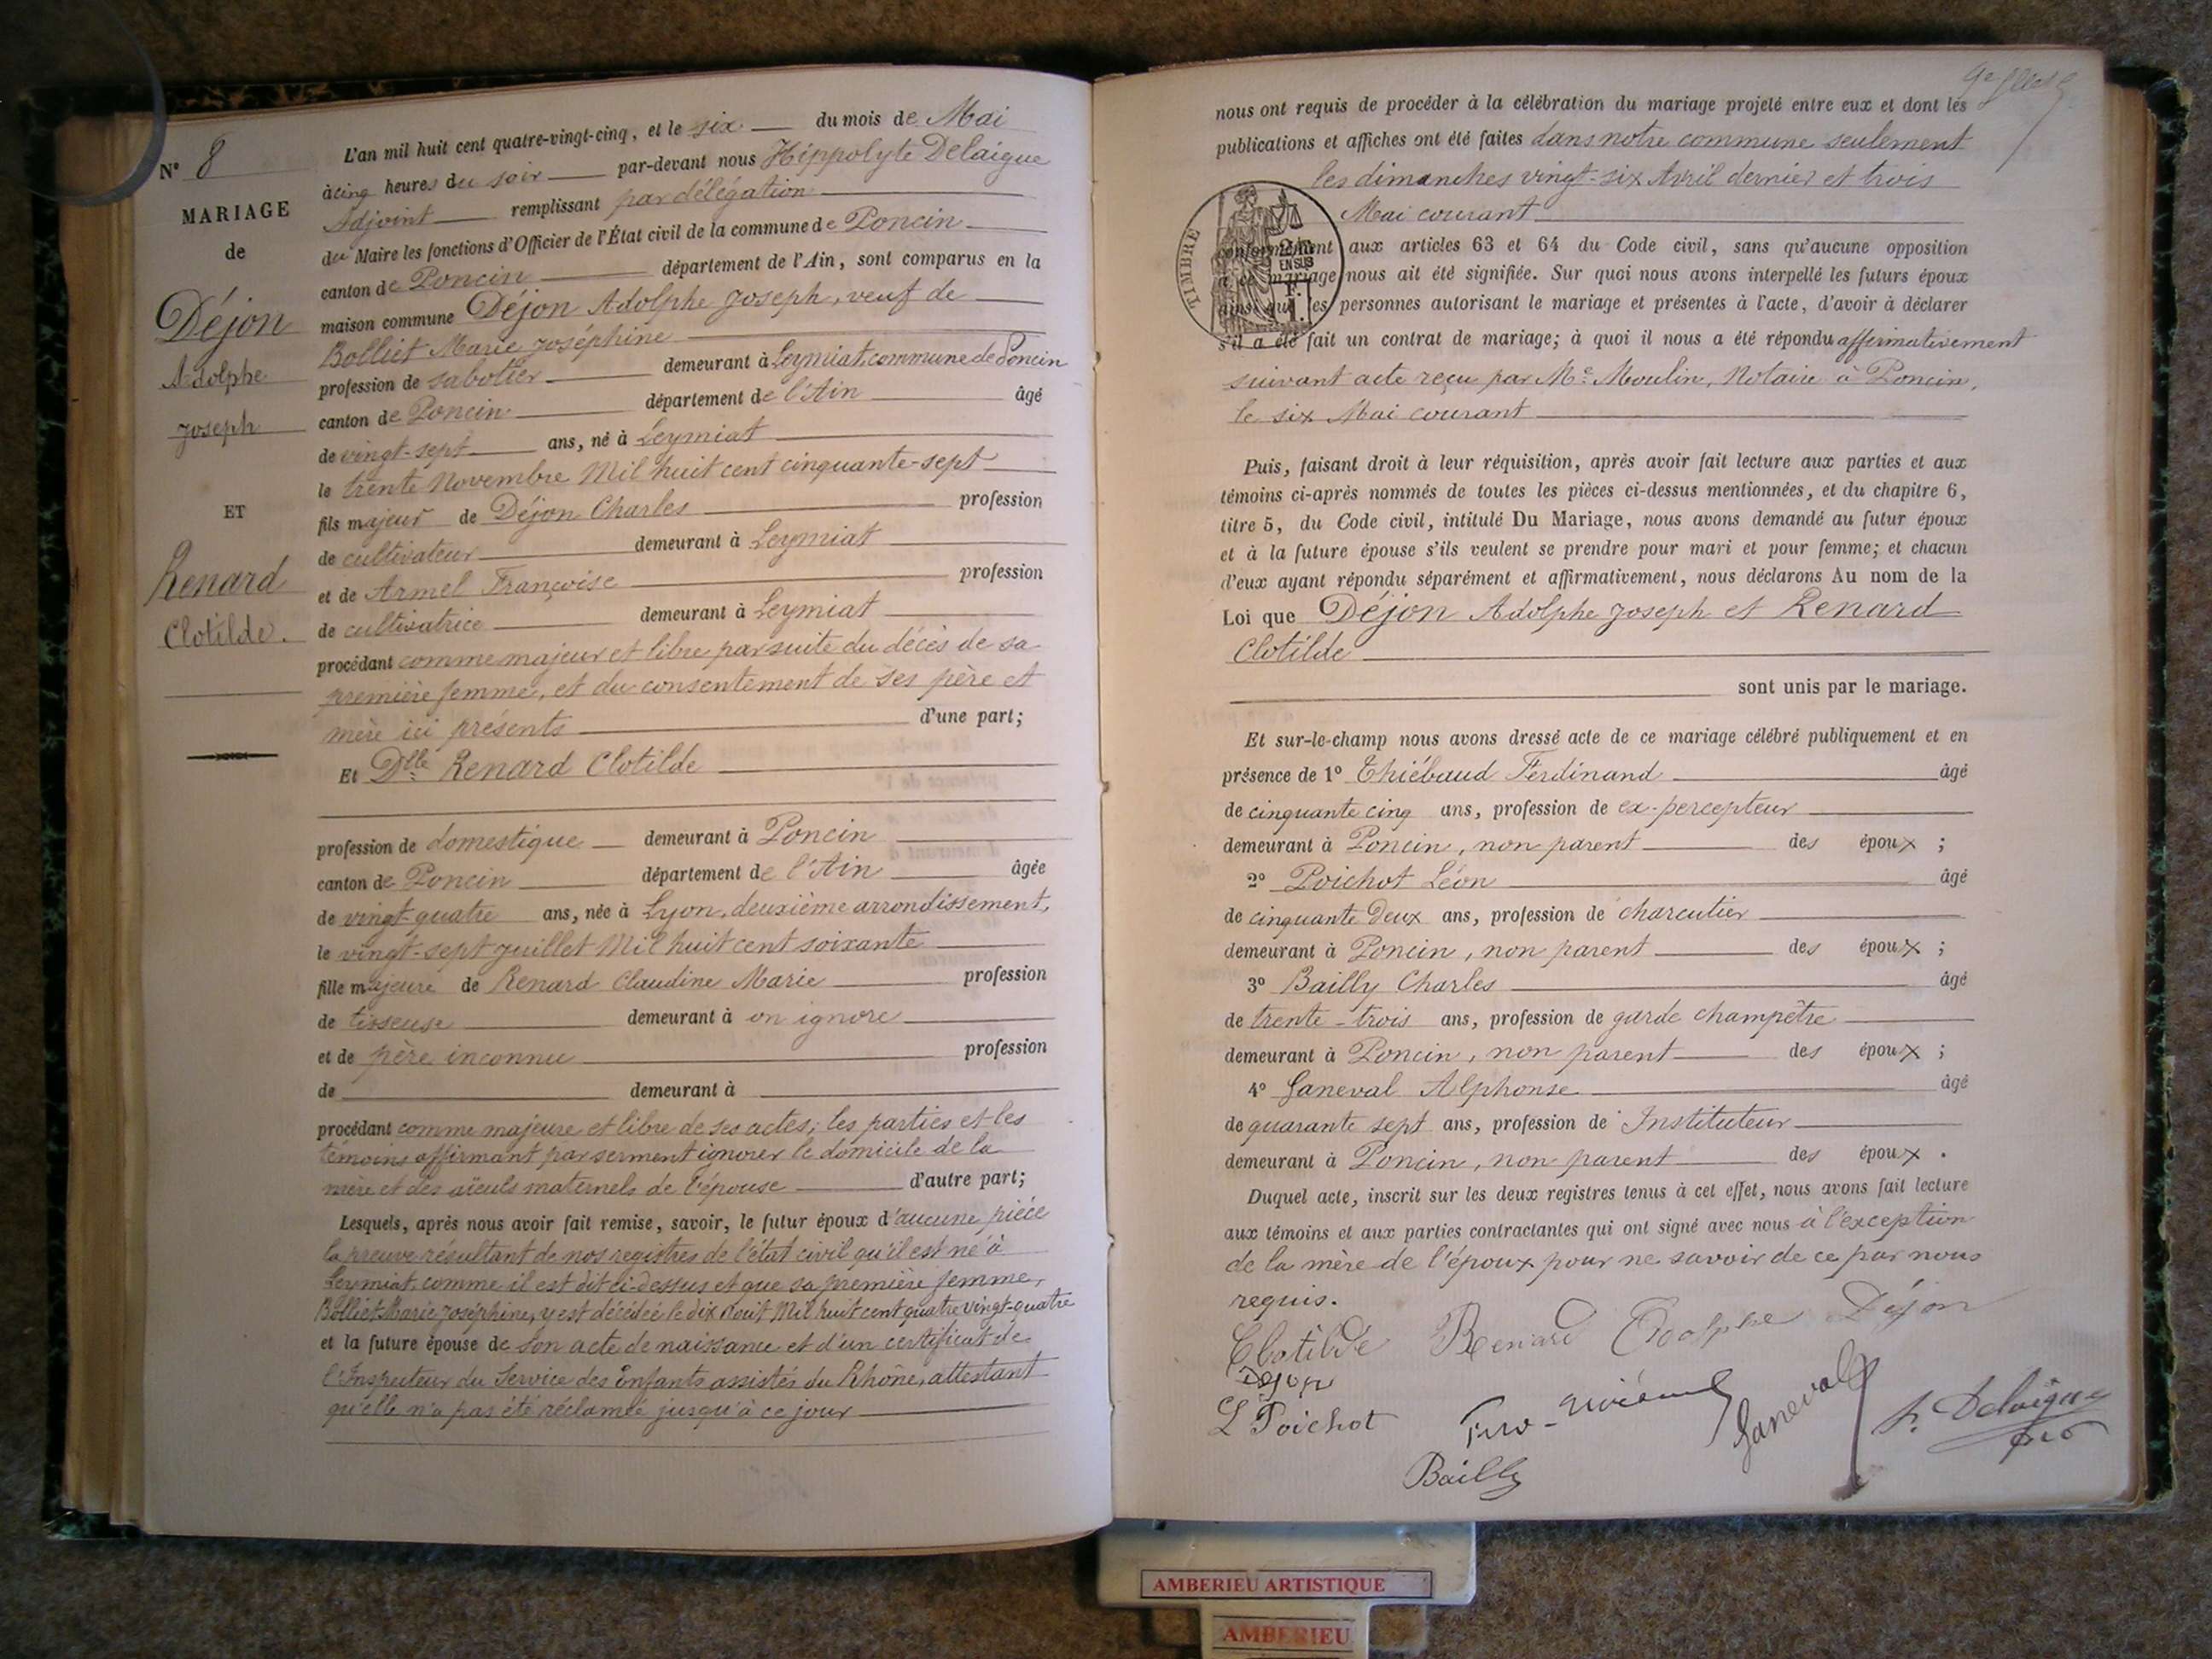 N° 8
MARIAGE
de
Déjon
Adolphe
Joseph
ET
Renard
Clotilde.
L'an mil huit cent quatre-vingt-cinq, et le six du mois de Mai
à cinq heures du soir par-devant nous Hippolyte Delaigue
Adjoint remplissant par délégation
du Maire les fonctions d'Officier de l'État civil de la commune de Poncin
canton de Poncin département de l'Ain, sont comparus en la
maison commune Déjon Adolphe Joseph, veuf de
Bolliet Marie Joséphine
profession de sabotier demeurant à Leymiat, commune de Poncin
canton de Poncin département de l'Ain âgé
de vingt-sept ans, né à Leymiat
le trente Novembre Mil huit cent cinquante-sept
fils majeur de Déjon Charles profession
de cultivateur demeurant à Leymiat
et de Armel Françoise profession
de cultivatrice demeurant à Leymiat
procédant comme majeur et libre par suite du décès de sa
première femme, et du consentement de ses père et
mère ici présents d'une part;
Et Dlle Renard Clotilde
profession de domestique demeurant à Poncin
canton de Poncin département de l'Ain âgée
de vingt-quatre ans, née à Lyon, deuxième arrondissement,
le vingt-sept Juillet Mil huit cent soixante
fille majeure de Renard Claudine Marie profession
de tisseuse demeurant à on ignore
et de père inconnu profession
de demeurant à
procédant comme majeure et libre de ses actes; les parties et les
témoins affirmant par serment ignorer le domicile de la
mère et des aïeuls maternels de l'épouse d'autre part;
Lesquels, après nous avoir fait remise, savoir, le futur époux d'aucune pièce
la preuve résultant de nos registres de l'état civil qu'il est né à
Leymiat, comme il est dit ci-dessus et que sa première femme,
Bolliet Marie Joséphine, y est décédée le dix Août Mil huit cent quatre vingt-quatre
et la future épouse de son acte de naissance et d'un certificat de
l'Inspecteur du Service des Enfants assistés du Rhône, attestant
qu'elle n'a pas été réclamée jusqu'à ce jour
nous ont requis de procéder à la célébration du mariage projeté entre eux et dont les
publications et affiches ont été faites dans notre commune seulement
les dimanches vingt-six Avril dernier et trois
Mai courant
TIMBRE
EN SUS
conformément aux articles 63 et 64 du Code civil, sans qu'aucune opposition
à ce mariage nous ait été signifiée. Sur quoi nous avons interpellé les futurs époux
ainsi que les personnes autorisant le mariage et présentes à l'acte, d'avoir à déclarer
s'il a été fait un contrat de mariage; à quoi il nous a été répondu affirmativement
suivant acte reçu par Me Moulin, Notaire à Poncin,
le six Mai courant
Puis, faisant droit à leur réquisition, après avoir fait lecture aux parties et aux
témoins ci-après nommés de toutes les pièces ci-dessus mentionnées, et du chapitre 6,
titre 5, du Code civil, intitulé Du Mariage, nous avons demandé au futur époux
et à la future épouse s'ils veulent se prendre pour mari et pour femme; et chacun
d'eux ayant répondu séparément et affirmativement, nous déclarons Au nom de la
Loi que Déjon Adolphe Joseph et Renard
Clotilde
sont unis par le mariage.
Et sur-le-champ nous avons dressé acte de ce mariage célébré publiquement et en
présence de 1° Thiébaud Ferdinand âgé
de cinquante cinq ans, profession de ex-percepteur
demeurant à Poncin, non parent des époux ;
2° Poichot Léon âgé
de cinquante deux ans, profession de charcutier
demeurant à Poncin, non parent des époux ;
3° Bailly Charles âgé
de trente-trois ans, profession de garde champêtre
demeurant à Poncin, non parent des époux ;
4° Janeval Alphonse âgé
de quarante sept ans, profession de Instituteur
demeurant à Poncin, non parent des époux .
Duquel acte, inscrit sur les deux registres tenus à cet effet, nous avons fait lecture
aux témoins et aux parties contractantes qui ont signé avec nous à l'exception
de la mère de l'époux pour ne savoir de ce par nous
requis.
Clotilde Renard Adolphe Déjon
Dejon
L Poichot Janeval H. Delaigue
Bailly
AMBERIEU ARTISTIQUE
AMBERIEU